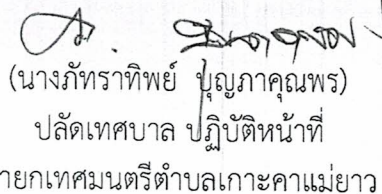 (นางภัทราทิพย์ บุญภาคุณพร)
ปลัดเทศบาล ปฏิบัติหน้าที่
ายกเทศมนตรีตำบลเกาะคาแม่ยาว